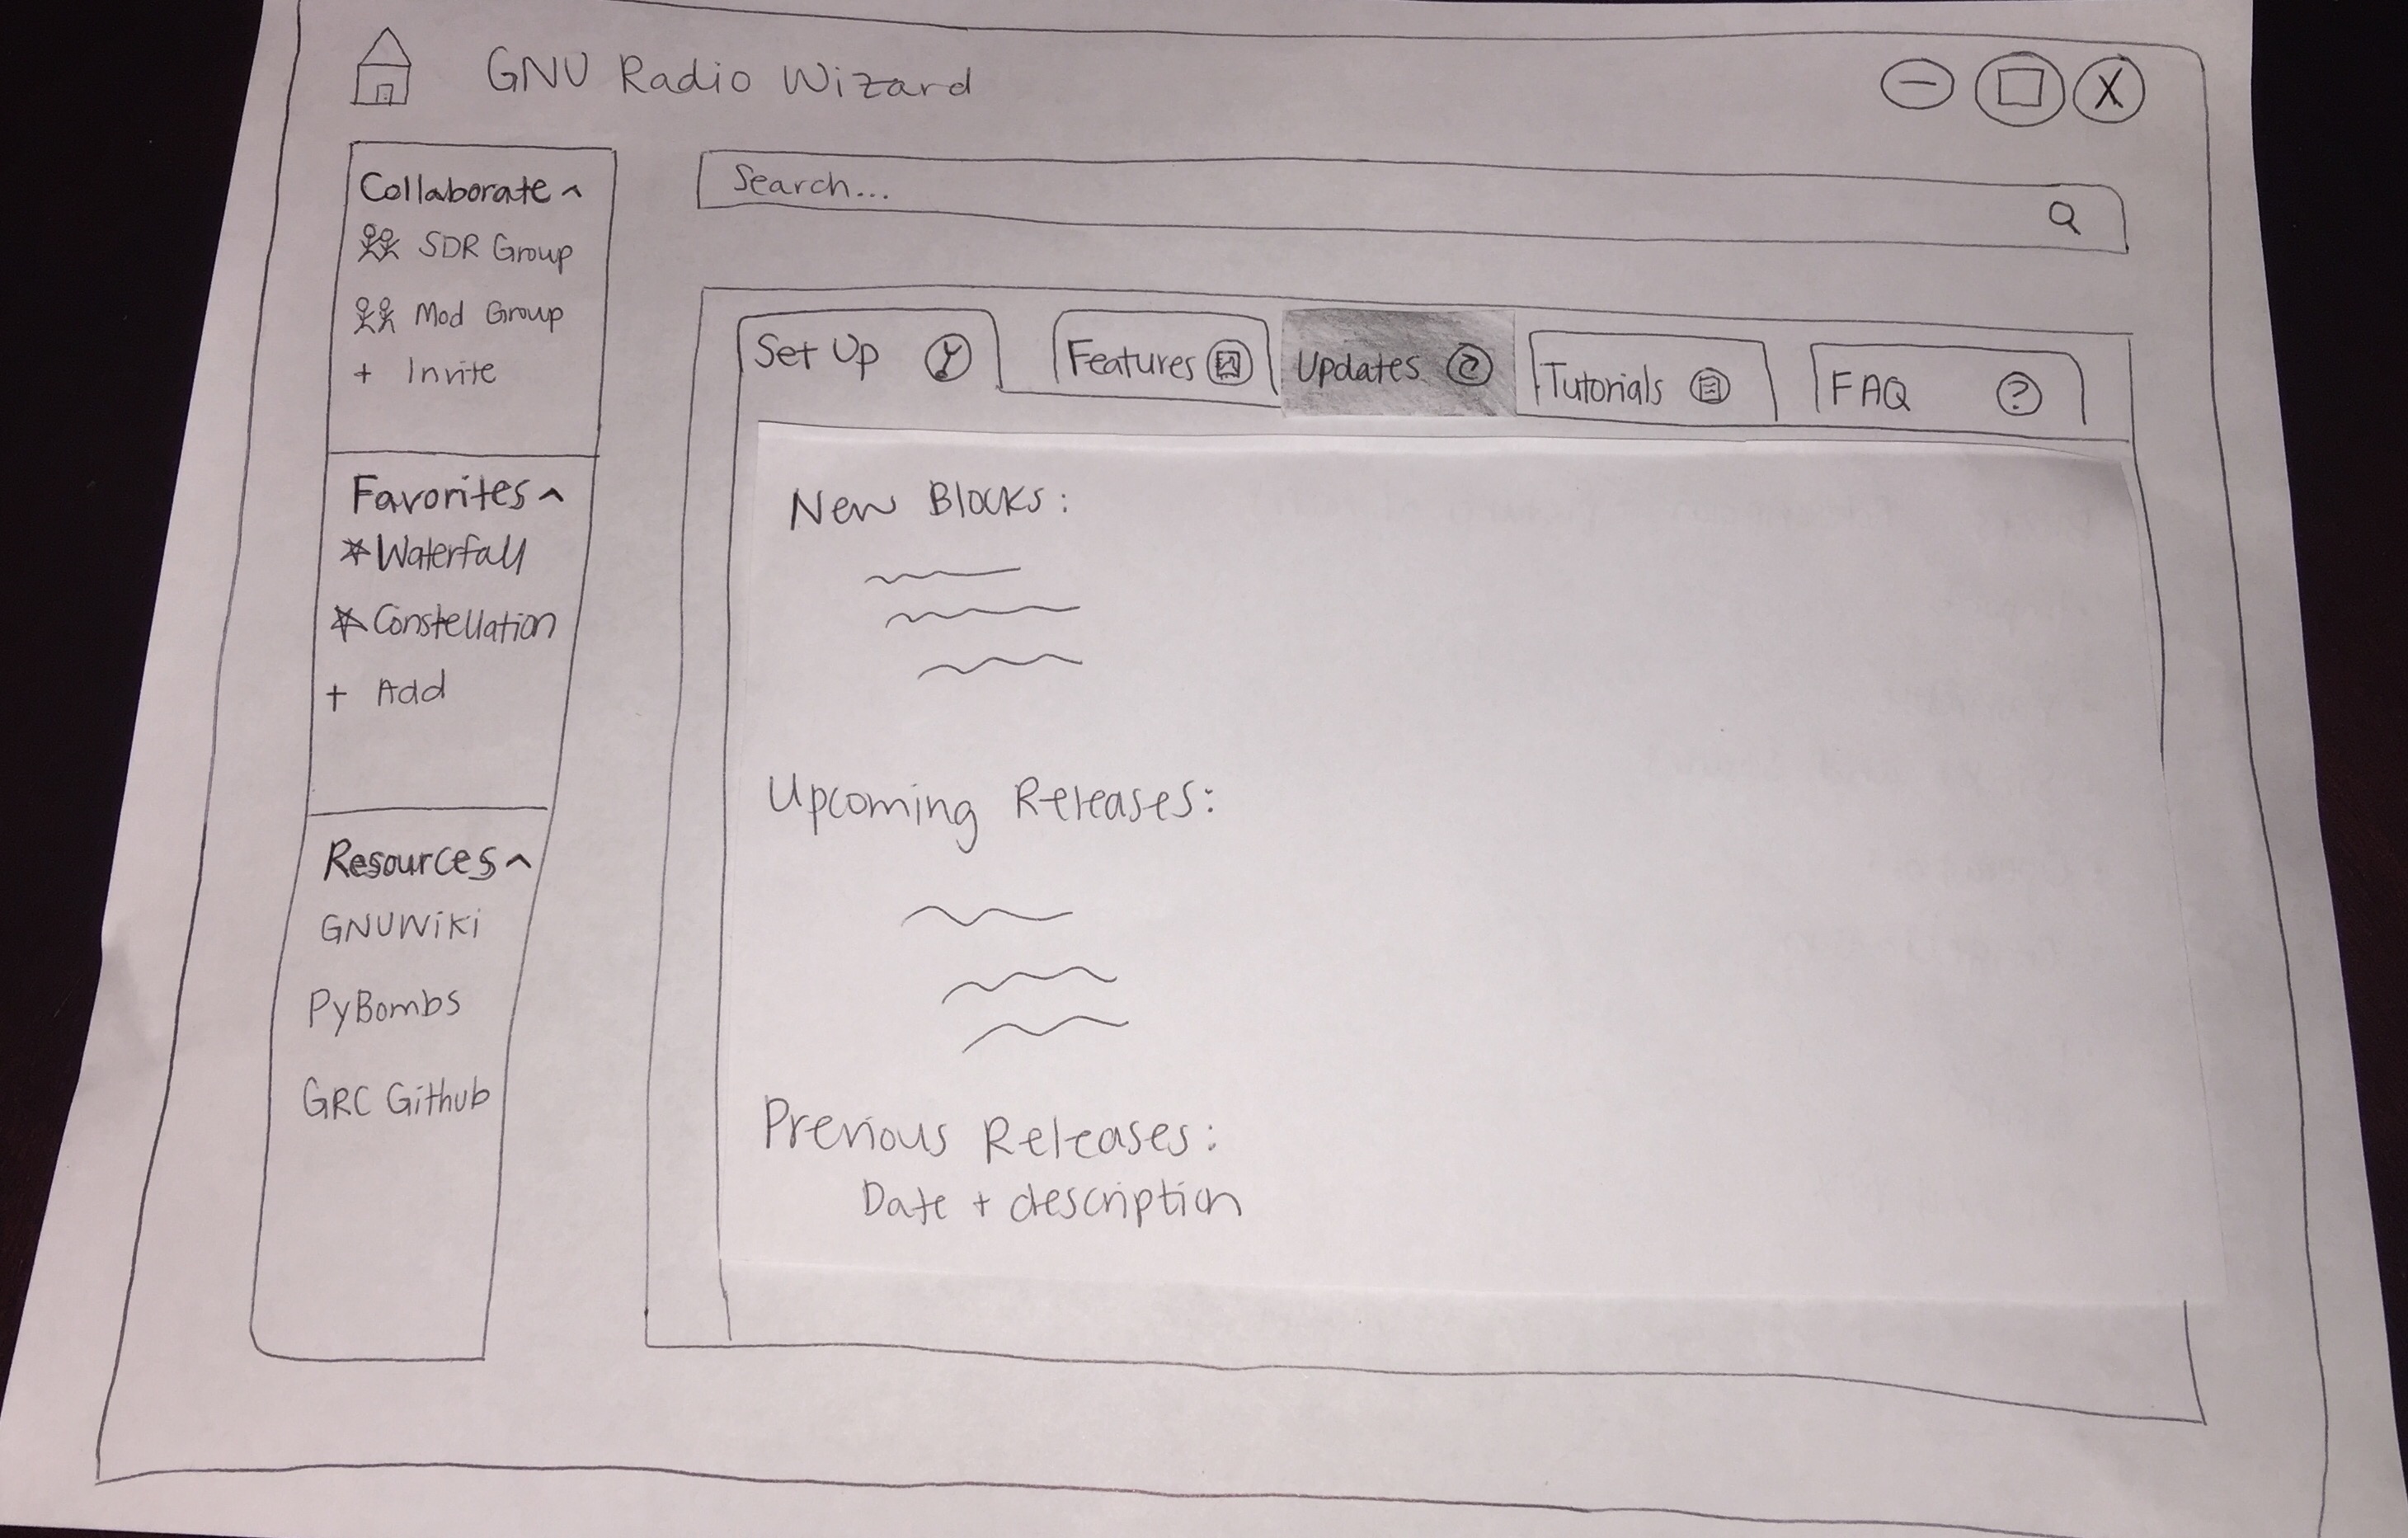 GNU Radio Wizard
X
Collaborate ^
SDR Group
Mod Group
+ Invite
Favorites ^
Waterfall
Constellation
+ Add
Resources ^
GNUWiki
PyBombs
GRC Github
Search...
Set Up
Features
Updates
Tutorials
FAQ ?
New Blocks:
Upcoming Releases:
Previous Releases:
Date + description